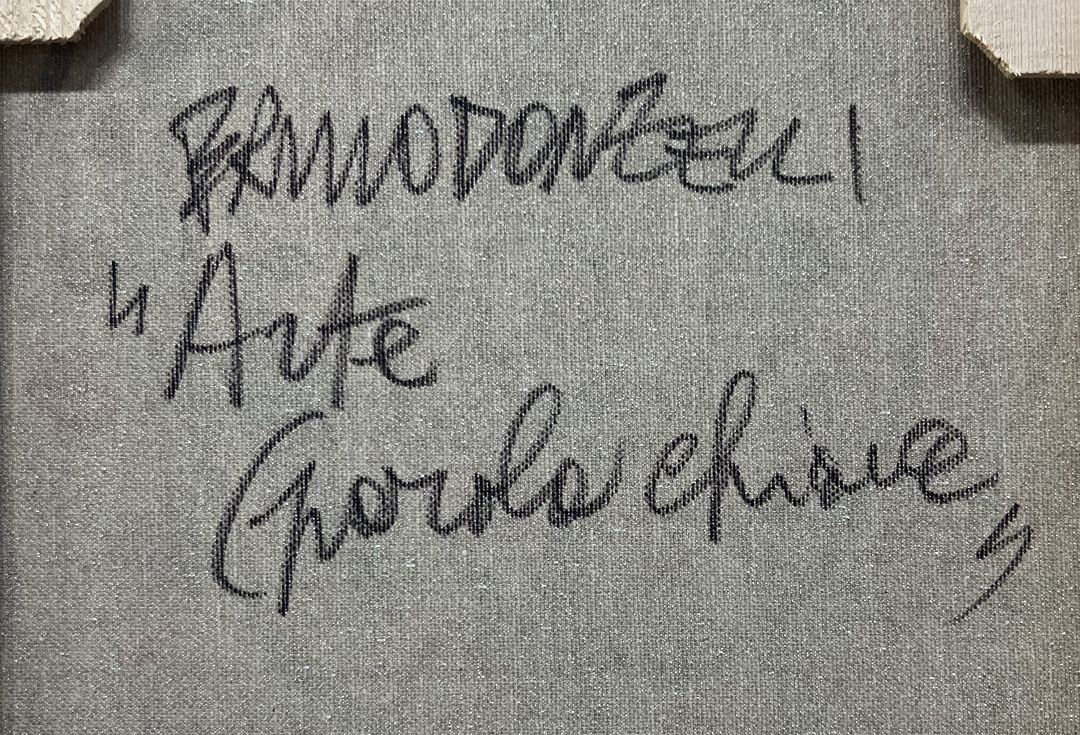 BRUNO DONZELLI
"Arte
(parola chiave"